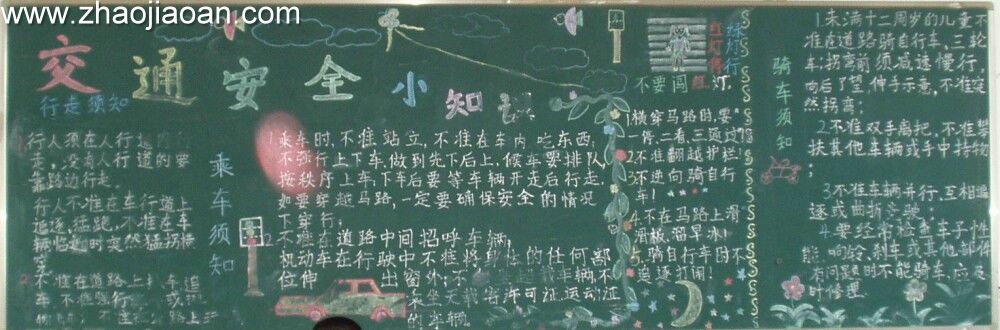 www.zhaojiaoan.com
交通安全小知识
行走须知
行人须在人行道内行
走,没有人行道的要
靠路边行走。
行人不准在车行道上
追逐,猛跑,不准在车
辆临近时突然猛拐横
穿
不准在道路上扒车追
车,不准强行
乘车须知
1乘车时,不准站立,不准在车内吃东西,
不强行上下车,做到先下后上,候车要排队,
按秩序上车;下车后要等车辆开走后行走,
如要穿越马路,一定要确保安全的情况
下穿行;
2不准在道路中间招呼车辆,
机动车在行驶中不准将身体的任何部
位伸出窗外;不
的车辆.
红灯停
绿灯行
不要闯红灯.
1横穿马路时,要"
一停,二看,三通过"
2不准翻越护栏!
3不逆向骑自行
车!
4.不在马路上滑
滑板,溜旱冰!
5.骑自行车时不
追逐打闹!
骑车须知
1.未满十二周岁的儿童不
准在道路骑自行车,三轮
车;拐弯前须减速慢行,
向后了望,伸手示意,不准突
然拐弯;
2.不准双手离把,不准攀
扶其他车辆或手中持物;
3.不准车辆并行、互相追
逐或曲折竞驶;
4.要经常检查车子性
能,响铃、刹车或其他部件
有问题时不能骑车,应及
时修理.